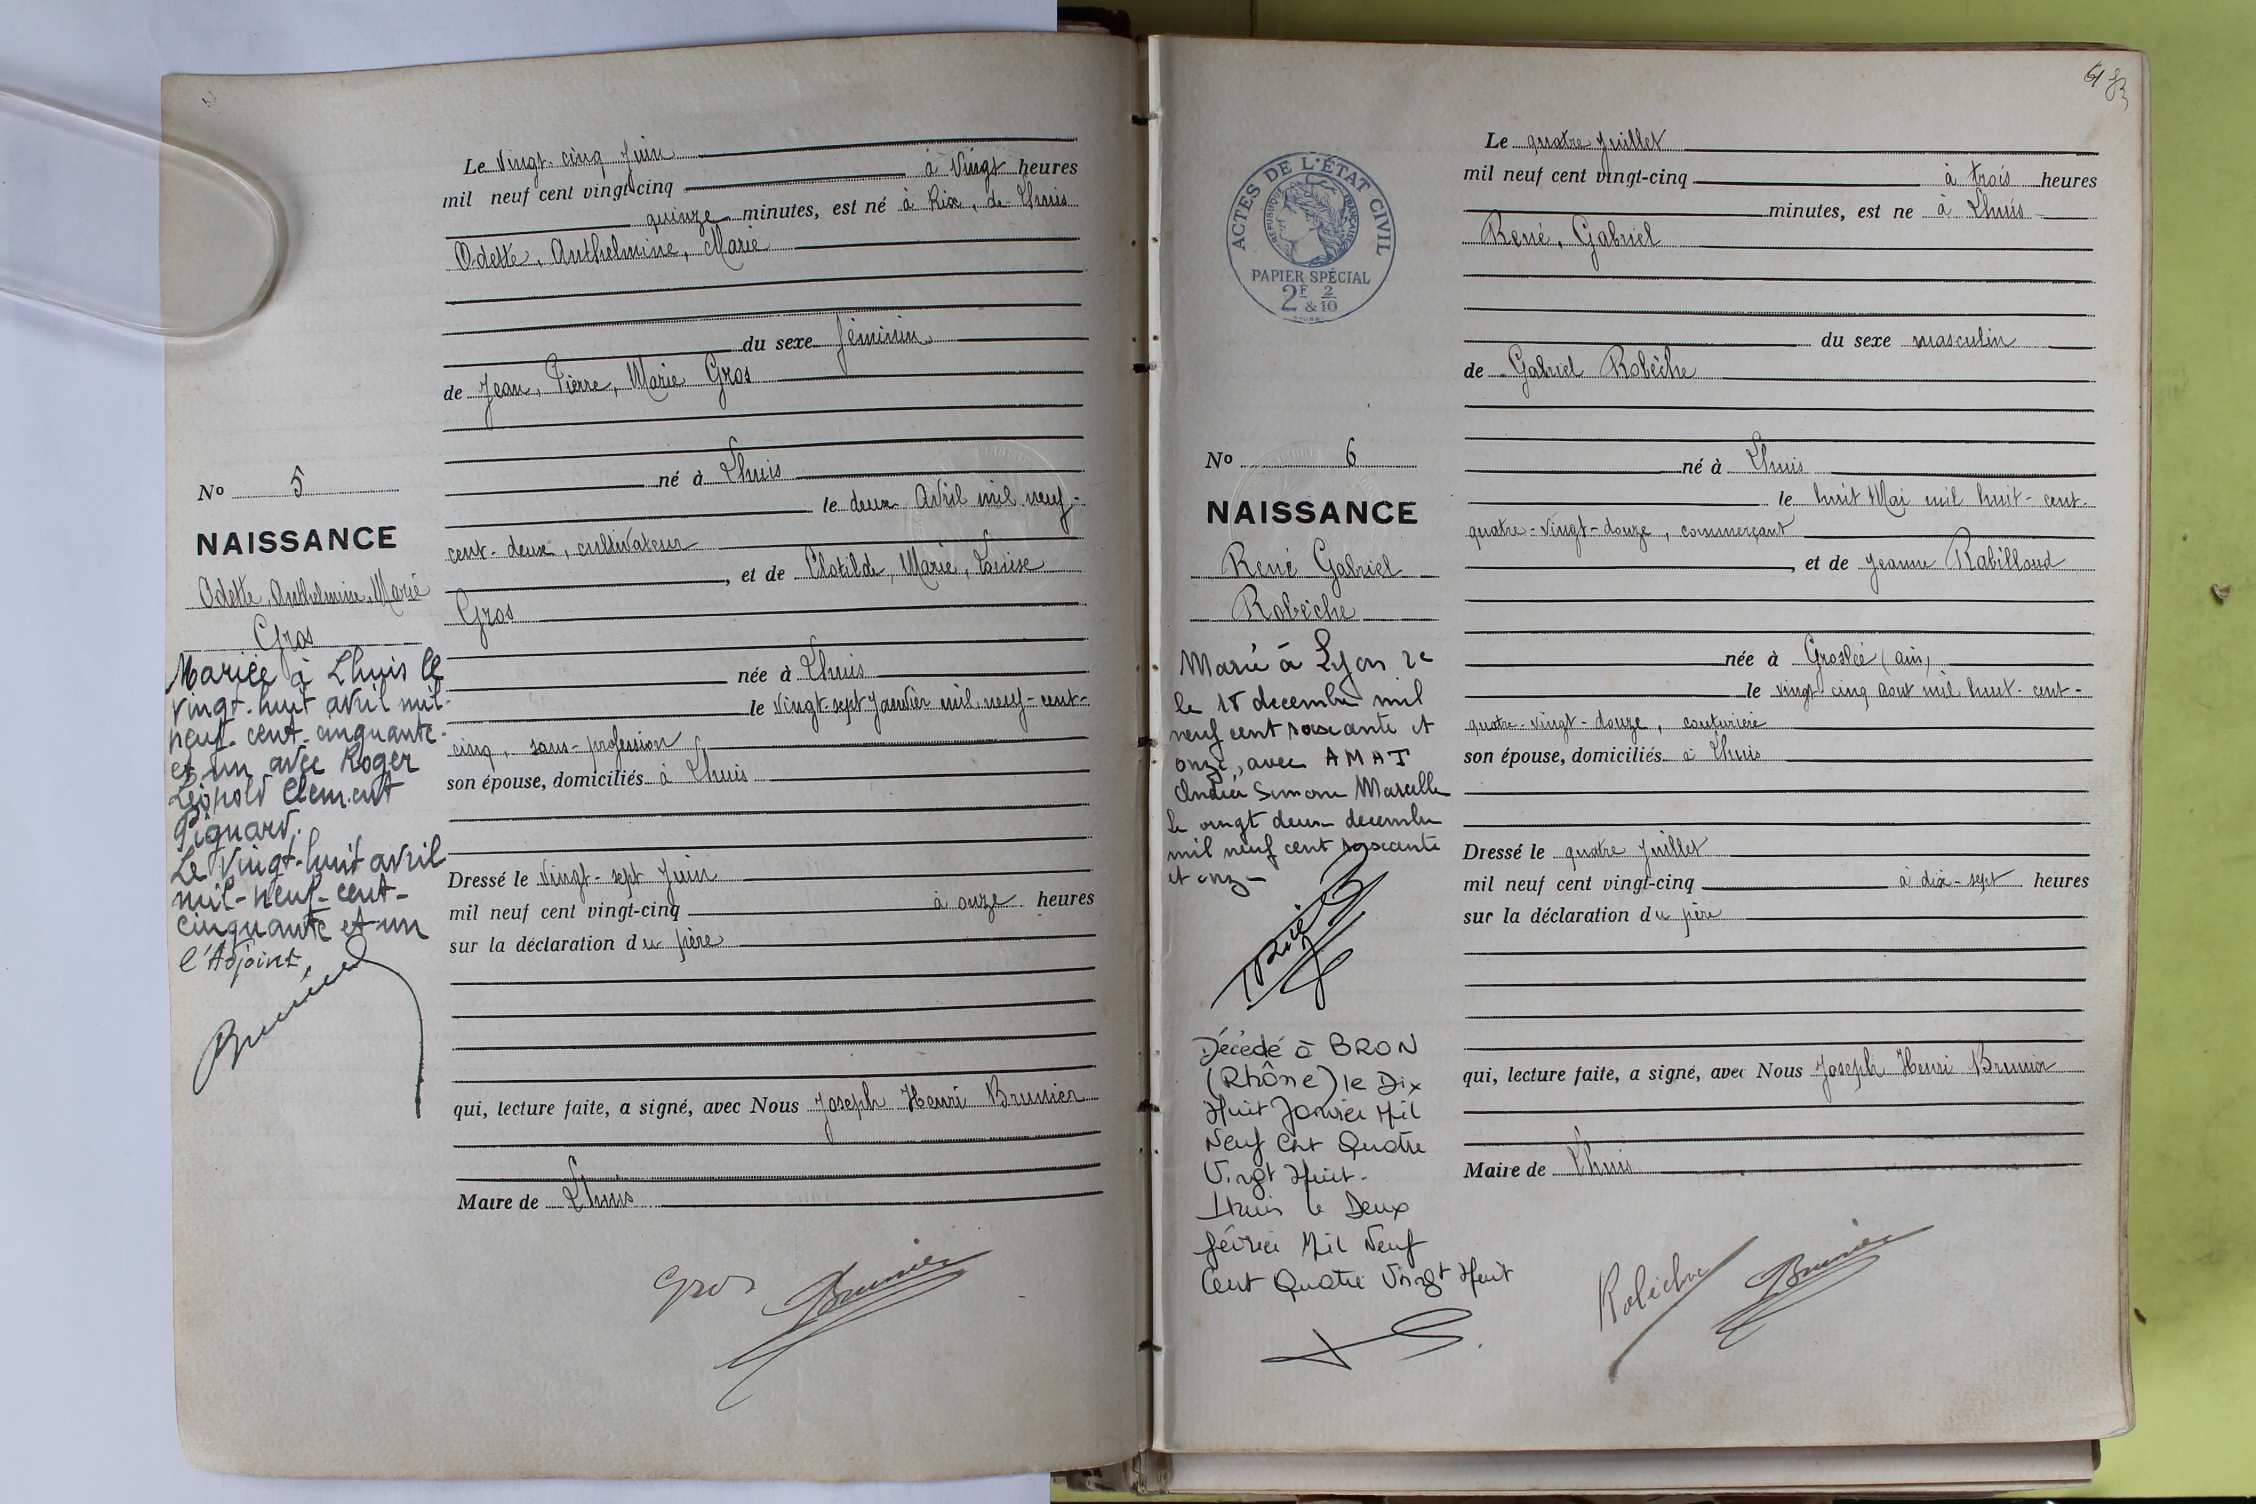 Le vingt-cinq Juin
mil neuf cent vingt-cinq à vingt heures
quinze minutes, est né à Rix, de Lhuis
Odette, Anthelmine, Marie
du sexe féminin
de Jean, Pierre, Marie Gros
né à Lhuis
le deux Avril mil neuf-
cent-deux, cultivateur
, et de Clotilde, Marie, Louise
Gros
née à Lhuis
le vingt-sept Janvier mil neuf-cent-
cinq, sans-profession
son épouse, domiciliés à Lhuis
Dressé le vingt-sept Juin
mil neuf cent vingt-cinq à onze heures
sur la déclaration du père
qui, lecture faite, a signé, avec Nous Joseph Henri Brunier
Maire de Lhuis
Gros Brunier
No 5
NAISSANCE
Odette, Anthelmine, Marie
Gros
Mariée à Lhuis le
vingt-huit avril mil-
neuf-cent-cinquante-
et un avec Roger
Léopold Clément
Piguard.
Le vingt-huit avril
mil-neuf-cent-
cinquante et un
l'Adjoint,
61
ACTES DE L'ÉTAT CIVIL
RÉPUBLIQUE FRANÇAISE
PAPIER SPÉCIAL
2F & 2/10
Le quatre Juillet
mil neuf cent vingt-cinq à trois heures
minutes, est né à Lhuis
René, Gabriel
du sexe masculin
de Gabriel Robèche
né à Lhuis
le huit Mai mil huit-cent-
quatre-vingt-douze, commerçant
, et de Jeanne Rabilloud
née à Groslée (ain)
le vingt-cinq août mil huit-cent-
quatre-vingt-douze, couturière
son épouse, domiciliés à Lhuis
Dressé le quatre Juillet
mil neuf cent vingt-cinq à dix-sept heures
sur la déclaration du père
qui, lecture faite, a signé, avec Nous Joseph Henri Brunier
Maire de Lhuis
Robèche Brunier
No 6
NAISSANCE
René Gabriel
Robèche
Marié à Lyon 2e
le 18 decembre mil
neuf cent soixante et
onze, avec AMAT
Andrée Simone Marcelle
le vingt deux decembre
mil neuf cent soixante
et onze
Décédé à BRON
(Rhône) le Dix
Huit Janvier Mil
Neuf Cent Quatre
Vingt Huit.
Lhuis le Deux
février Mil Neuf
Cent Quatre Vingt Huit